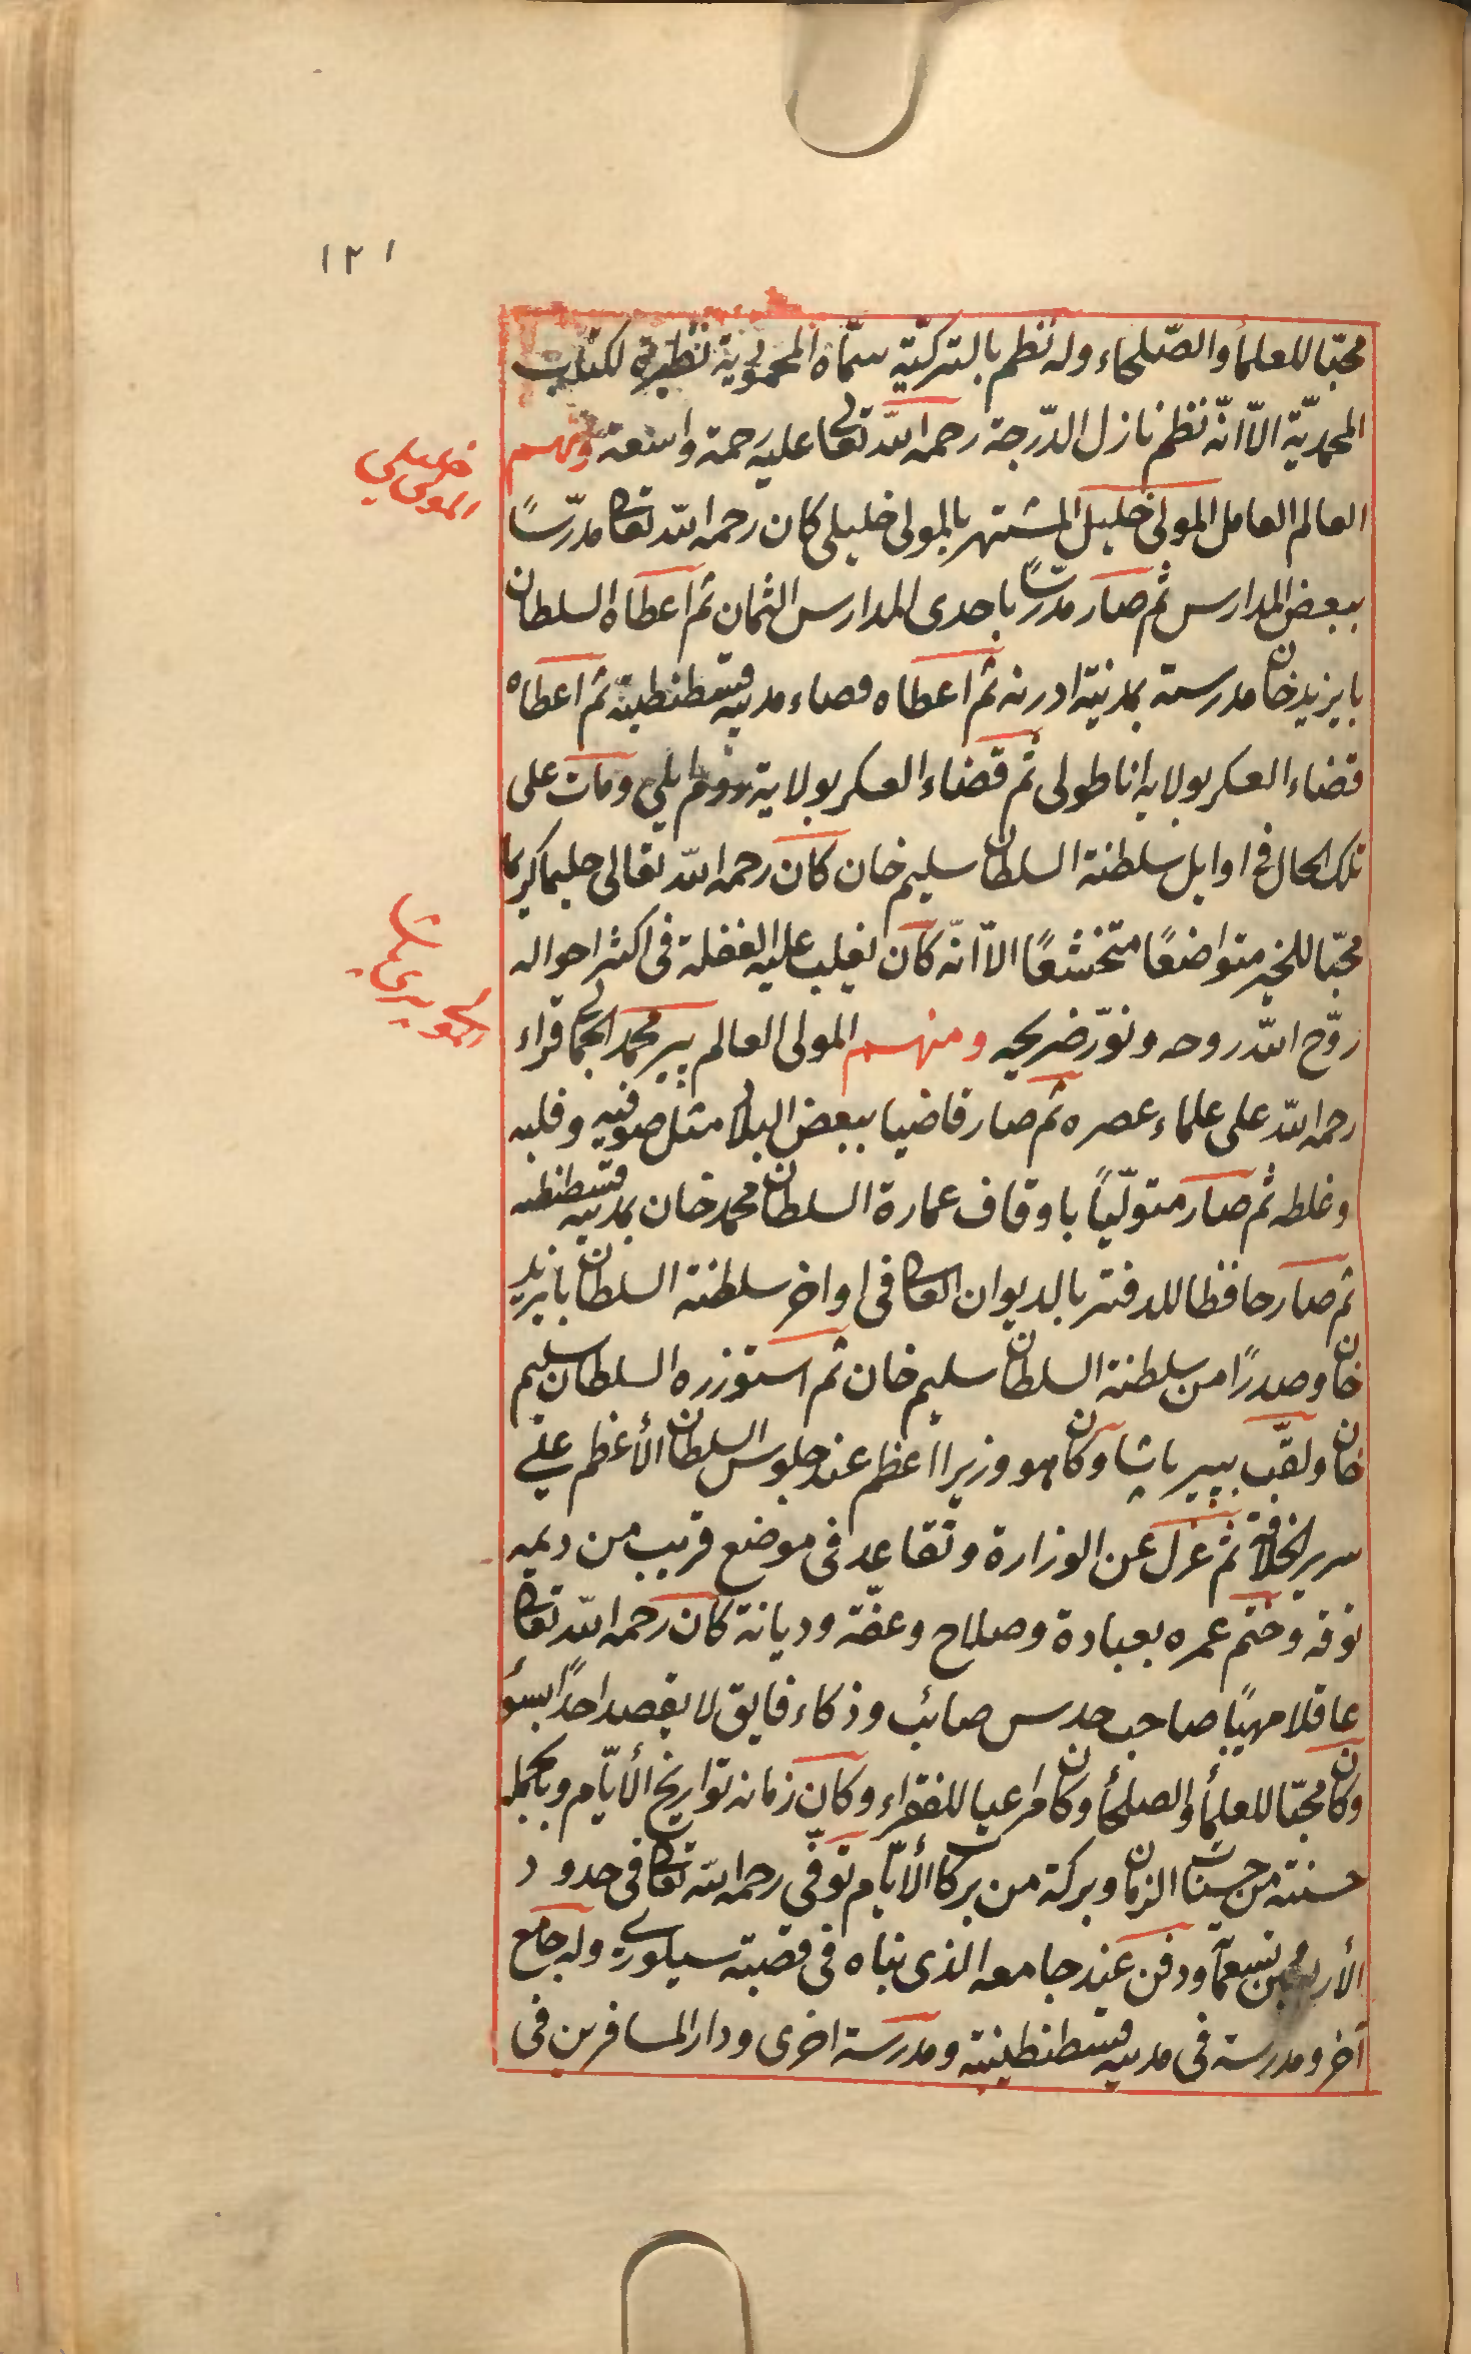 ١٢١
محبّا للعلماء والصّلحاء وله نظم بالتركيّة سمّاه المحموديّة نظيرة لكتاب
المحمديّة الاّ انّه نظم نازل الدّرجة رحمه اللّه تعالى عليه رحمة واسعة ومنهم
المولى خليلي
العالم العامل المولى خليل المشتهر بالمولى خليلى كان رحمه اللّه تعالى مدرّسًا
ببعض المدارس ثم صار مدرّسًا باحدى المدارس الثمان ثم اعطاه السلطان
بايزيد خان مدرسة بمدينة ادرنه ثم اعطاه قضاء مدينة قسطنطينية ثم اعطاه
قضاء العسكر بولاية اناطولى ثم قضاء العسكر بولاية روم ايلي ومات على
تلك الحال فى اوايل سلطنة السلطان سليم خان كان رحمه اللّه تعالى حليما كريما
محبّا للخير متواضعًا متخشعًا الاّ انّه كان يغلب عليه الغفلة فى اكثر احواله
روّح اللّه روحه ونوّر ضريحه ومنهم المولى العالم پير محمد الجمالى قراء
رحمه اللّه على علماء عصره ثم صار قاضيا ببعض البلاد مثل صوفيه وفلبه
وغلطه ثم صار متولّيًا باوقاف عمارة السلطان محمد خان بمدينة قسطنطنيه
ثم صار حافظا للدفتر بالديوان العالى فى اواخر سلطنة السلطان بايزيد
خان وصدرًا من سلطنة السلطان سليم خان ثم استوزره السلطان سليم
خان ولقّب ببير باشا وكان هو وزيرا اعظم عند جلوس السلطان الأعظم على
سرير الخلافة ثم عزل عن الوزارة وتقاعد فى موضع قريب من ديمه
توقه وختم عمره بعبادة وصلاح وعفّة وديانة كان رحمه اللّه تعالى
عاقلا مهيبًا صاحب حدس صائب وذكاء فايق لا يقصد احدًا بسؤ
وكان محبّا للعلماء والصلحاء وكان مراعيا للفقراء وكان زمانه تواريخ الأيّام وبالجمله
حسنة من حسنات الزمان وبركة من بركات الأيّام توفّي رحمه اللّه تعالى فى حدود
الأربعين وتسعمآئه ودفن عند جامعه الذى بناه فى قصبة سيلورى وله جامع
آخر ومدرسة فى مدينة قسطنطينية ومدرسة اخرى ودار المسافرين فى